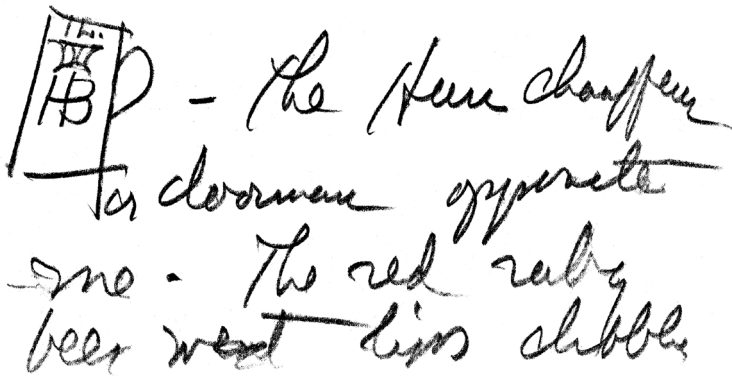 HB - The Herr chauffeur
or doorman opposite
me. The red ruby
beer wet lips dribble